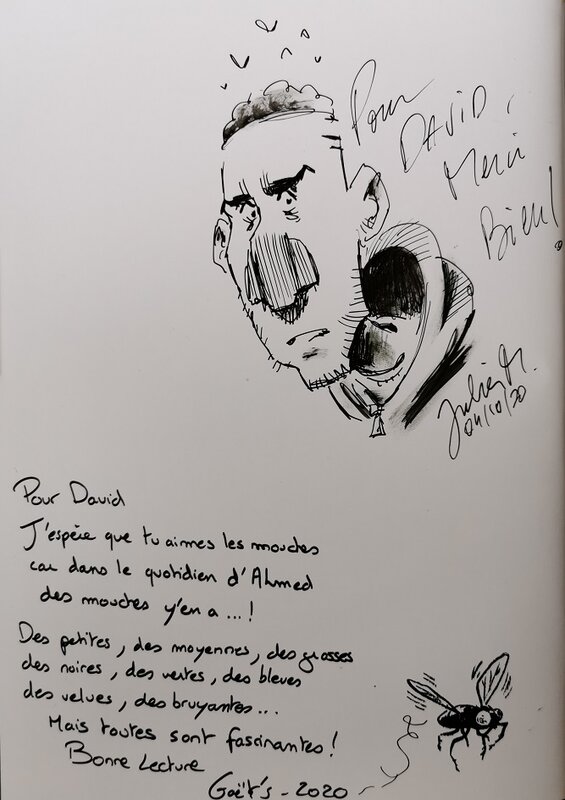 Pour
DAVID,
Merci
Bien!
Julien M.
04/10/20
Pour David
J'espère que tu aimes les mouches
car dans le quotidien d'Ahmed
des mouches y'en a ...!
Des petites, des moyennes, des grosses
des noires, des vertes, des bleues
des velues, des bruyantes...
Mais toutes sont fascinantes!
Bonne Lecture
Gaët's - 2020